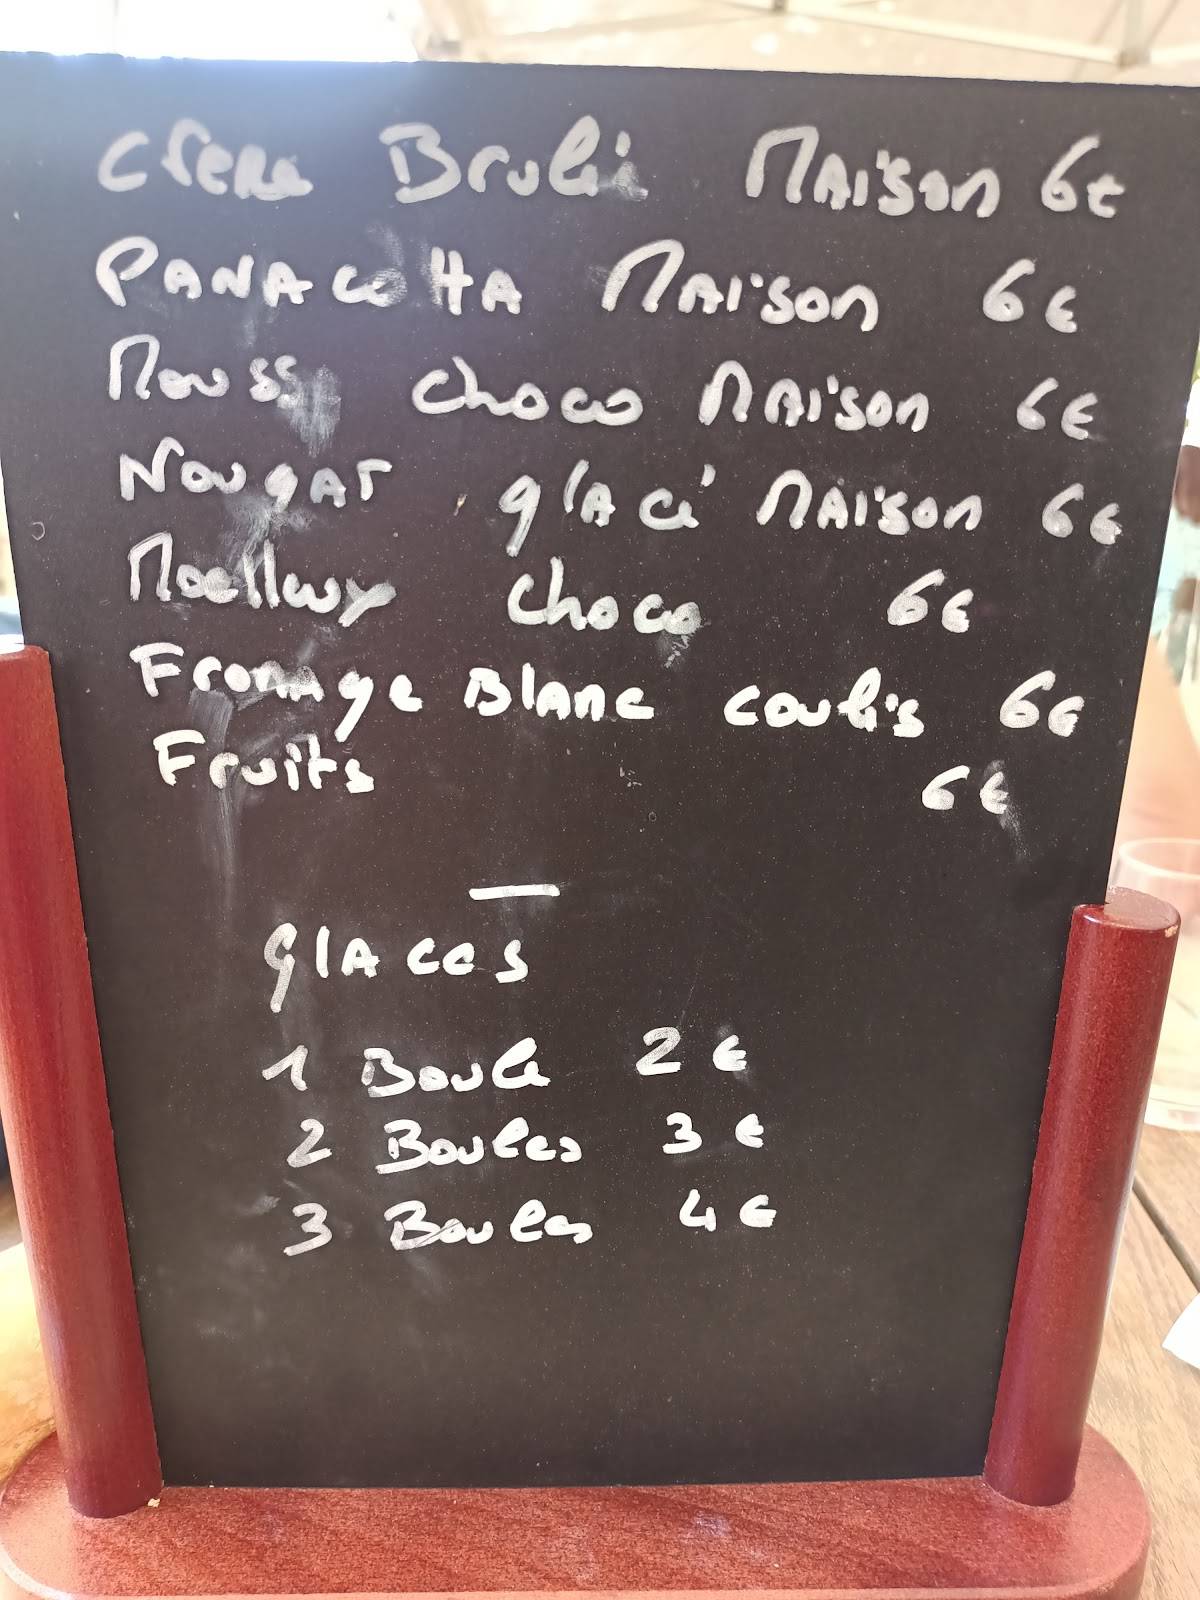 Creme Brulé Maison 6€
PANAcottA Maison 6€
Mouss choco Maison 6€
Nougat glacé Maison 6€
Moelleux choco 6€
Fromage Blanc coulis 6€
Fruits 6€
glaces
1 Boule 2€
2 Boules 3€
3 Boules 4€